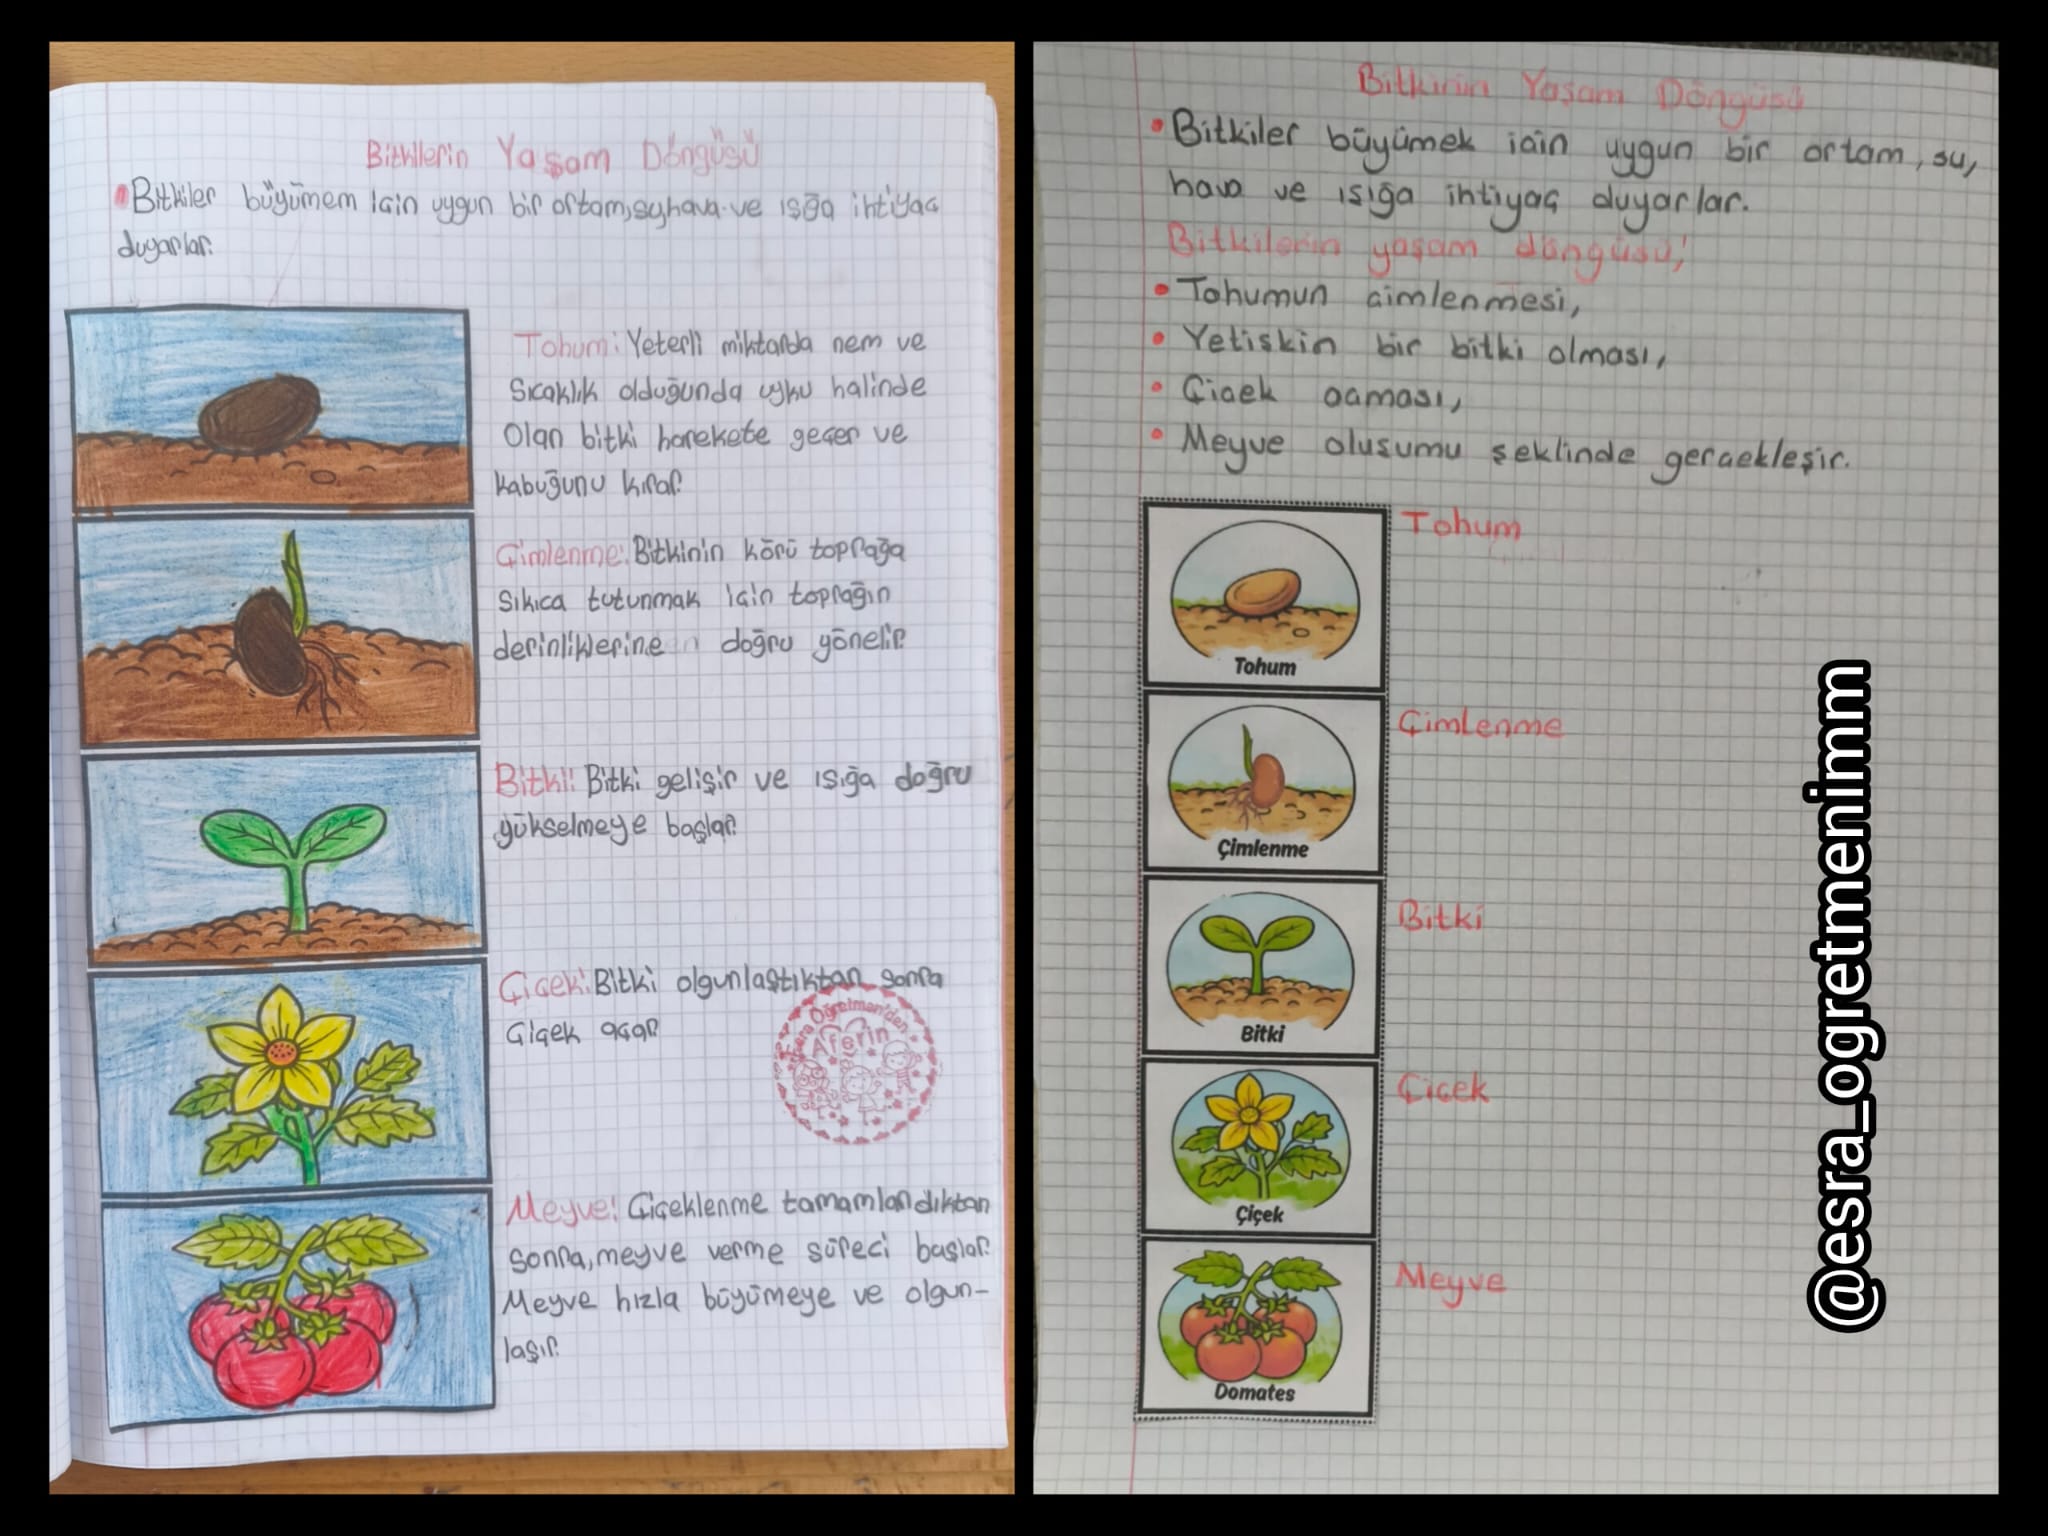 Bitkilerin Yaşam Döngüsü
Bitkiler büyümem için uygun bir ortam,su,hava ve ışığa ihtiyaç
duyarlar.
Tohum: Yeterli miktarda nem ve
Sıcaklık olduğunda uyku halinde
Olan bitki harekete geçer ve
kabuğunu kırar.
Çimlenme: Bitkinin körü toprağa
Sıkıca tutunmak için toprağın
derinliklerine doğru yönelir.
Bitki: Bitki gelişir ve ışığa doğru
yükselmeye başlar.
Çiçek: Bitki olgunlaştıktan sonra
Çiçek açar.
Esra Öğretmen'den
Aferin
Meyve: Çiçeklenme tamamlandıktan
sonra,meyve verme süreci başlar.
Meyve hızla büyümeye ve olgun-
laşır.
Bitkinin Yaşam Döngüsü
Bitkiler büyümek için uygun bir ortam, su,
hava ve ışığa ihtiyaç duyarlar.
Bitkilerin yaşam döngüsü;
Tohumun çimlenmesi,
Yetişkin bir bitki olması,
Çiçek açması,
Meyve oluşumu şeklinde gerçekleşir.
Tohum
Tohum
Çimlenme
Çimlenme
Bitki
Bitki
Çiçek
Çiçek
Meyve
Domates
@esra_ogretmenimm